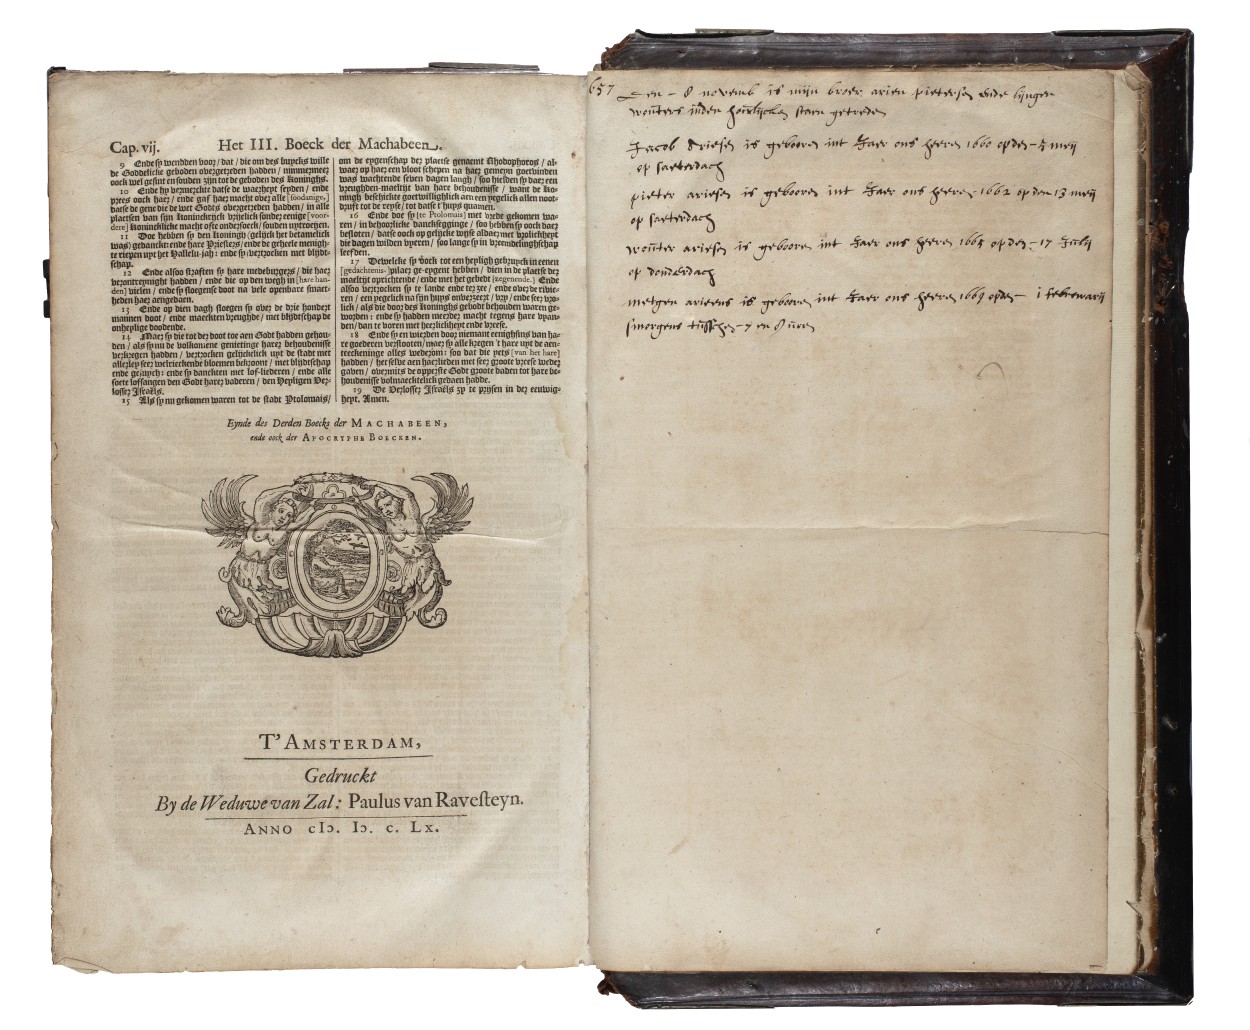 Cap. vij.
Het III. Boeck der Machabeen.
9 Ende sy wendden voor/ dat/ die om des buycks wille
de Goddelicke geboden overgetreden hadden/ nimmermeer
oock wel gesint en souden zijn tot de geboden des Koninghs.
10 Ende hy bemerckte datse de waerheyt seyden/ ende
prees oock haer/ ende gaf haer macht over alle [soodanige,]
datse de gene die de wet Godts overgetreden hadden/ in alle
plaetsen van sijn Koninckrijck vrijelick sonder eenige [voor-
dere] Koninklicke macht ofte ondersoeck/ souden uytroeyen.
11 Doe hebben sy den Koningh (gelijck het betamelick
was) gedanckt: ende hare Priesters/ ende de geheele menigh-
te riepen uyt het Hallelu-jah: ende sy vertrocken met blijdt-
schap.
12 Ende alsoo straften sy hare medeburgers/ die haer
verontreynight hadden/ ende die op den wegh [in hare han-
den] vielen/ ende sy sloegense doot na vele openbare smaet-
heden haer aengedaen.
13 Ende op dien dagh sloegen sy over de drie hondert
mannen doot/ ende maeckten vreughde/ met blijdschap de
onheylige doodende.
14 Maer sy die tot der doot toe aen Godt hadden gehou-
den/ als sy nu de volkomene genietinge harer behoudenisse
verkregen hadden/ vertrocken gelijckelick uyt de stadt met
allerley seer welrieckende bloemen bekroont/ met blijdtschap
ende gejuych: ende sy danckten met lof-liederen/ ende alle
soete lofsangen den Godt harer vaderen/ den Heyligen Ver-
losser Israëls.
15 Als sy nu gekomen waren tot de stadt Ptolomais/
om de eygenschap der plaetse genaemt Rhodophoros/ al-
waer op haer een vloot schepen na haer gemeyn goetvinden
was wachtende seven dagen langh/ soo hielden sy daer een
vreughden-maeltijt van hare behoudenisse/ want de Ko-
ningh beschickte goetwillighlick aen een yegelick allen noot-
druft tot de reyse/ tot datse t'huys quamen.
16 Ende doe sy [te Ptolomais] met vrede gekomen wa-
ren/ in behoorlicke dancksegginge/ soo hebben sy oock daer
besloten/ datse oock op gelijcke wijse aldaer met vrolickheyt
die dagen wilden vyeren/ soo lange sy in vreemdelinghschap
leefden.
17 Deweleke sy oock tot een heyligh gebruyck in eenen
[gedachtenis-]pilaer ge-eygent hebben/ dien in de plaetse der
maeltijt oprichtende/ ende met het gebedt [zegenende.] Ende
alsoo vertrocken sy te lande ende ter zee/ ende over de rivie-
ren/ een yegelick na sijn huys onverseert/ vry/ ende seer vro-
lick/ als die door des Koninghs gebodt behouden waren ge-
worden: ende sy hadden meerder macht tegens hare vyan-
den/ dan te voren met heerlickheyt ende vreese.
18 Ende sy en wierden door niemant eenighsins van ha-
re goederen verstooten/ maer sy alle kregen 't hare uyt de aen-
teeckeninge alles wederom: soo dat die yets [van het hare]
hadden/ het selve aen haerlieden met seer groote vreese weder
gaven/ overmits de opperste Godt groote daden tot hare be-
houdenisse volmaecktelick gedaen hadde.
19 De Verlosser Israëls zy te prijsen in der eeuwig-
heyt. Amen.
Eynde des Derden Boecks der MACHABEEN,
ende oock der APOCRYPHE BOECKEN.
T'AMSTERDAM,
Gedruckt
By de Weduwe van Zal: Paulus van Ravesteyn.
ANNO cIↄ. Iↄ. c. Lx.
657 Den - 8 novemb is mijn broer arien pietersen ende lijngen
wouters inden houlijcken staen getreden
Jacob Ariesen is gebooren int Jaer ons heeren 1660 opden meij
op saeterdach
pieter ariesen is gebooren int Jaer ons heeren 1662 op den 13 meij
op saeterdach
wouter ariesen is gebooren int Jaer ons heeren opden - 17 Julij
op donderdach
metgen arieens is gebooren int Jaer ons heeren 1669 opden - 1 februwarij
smorgens tusschen - 7 en 8 uren